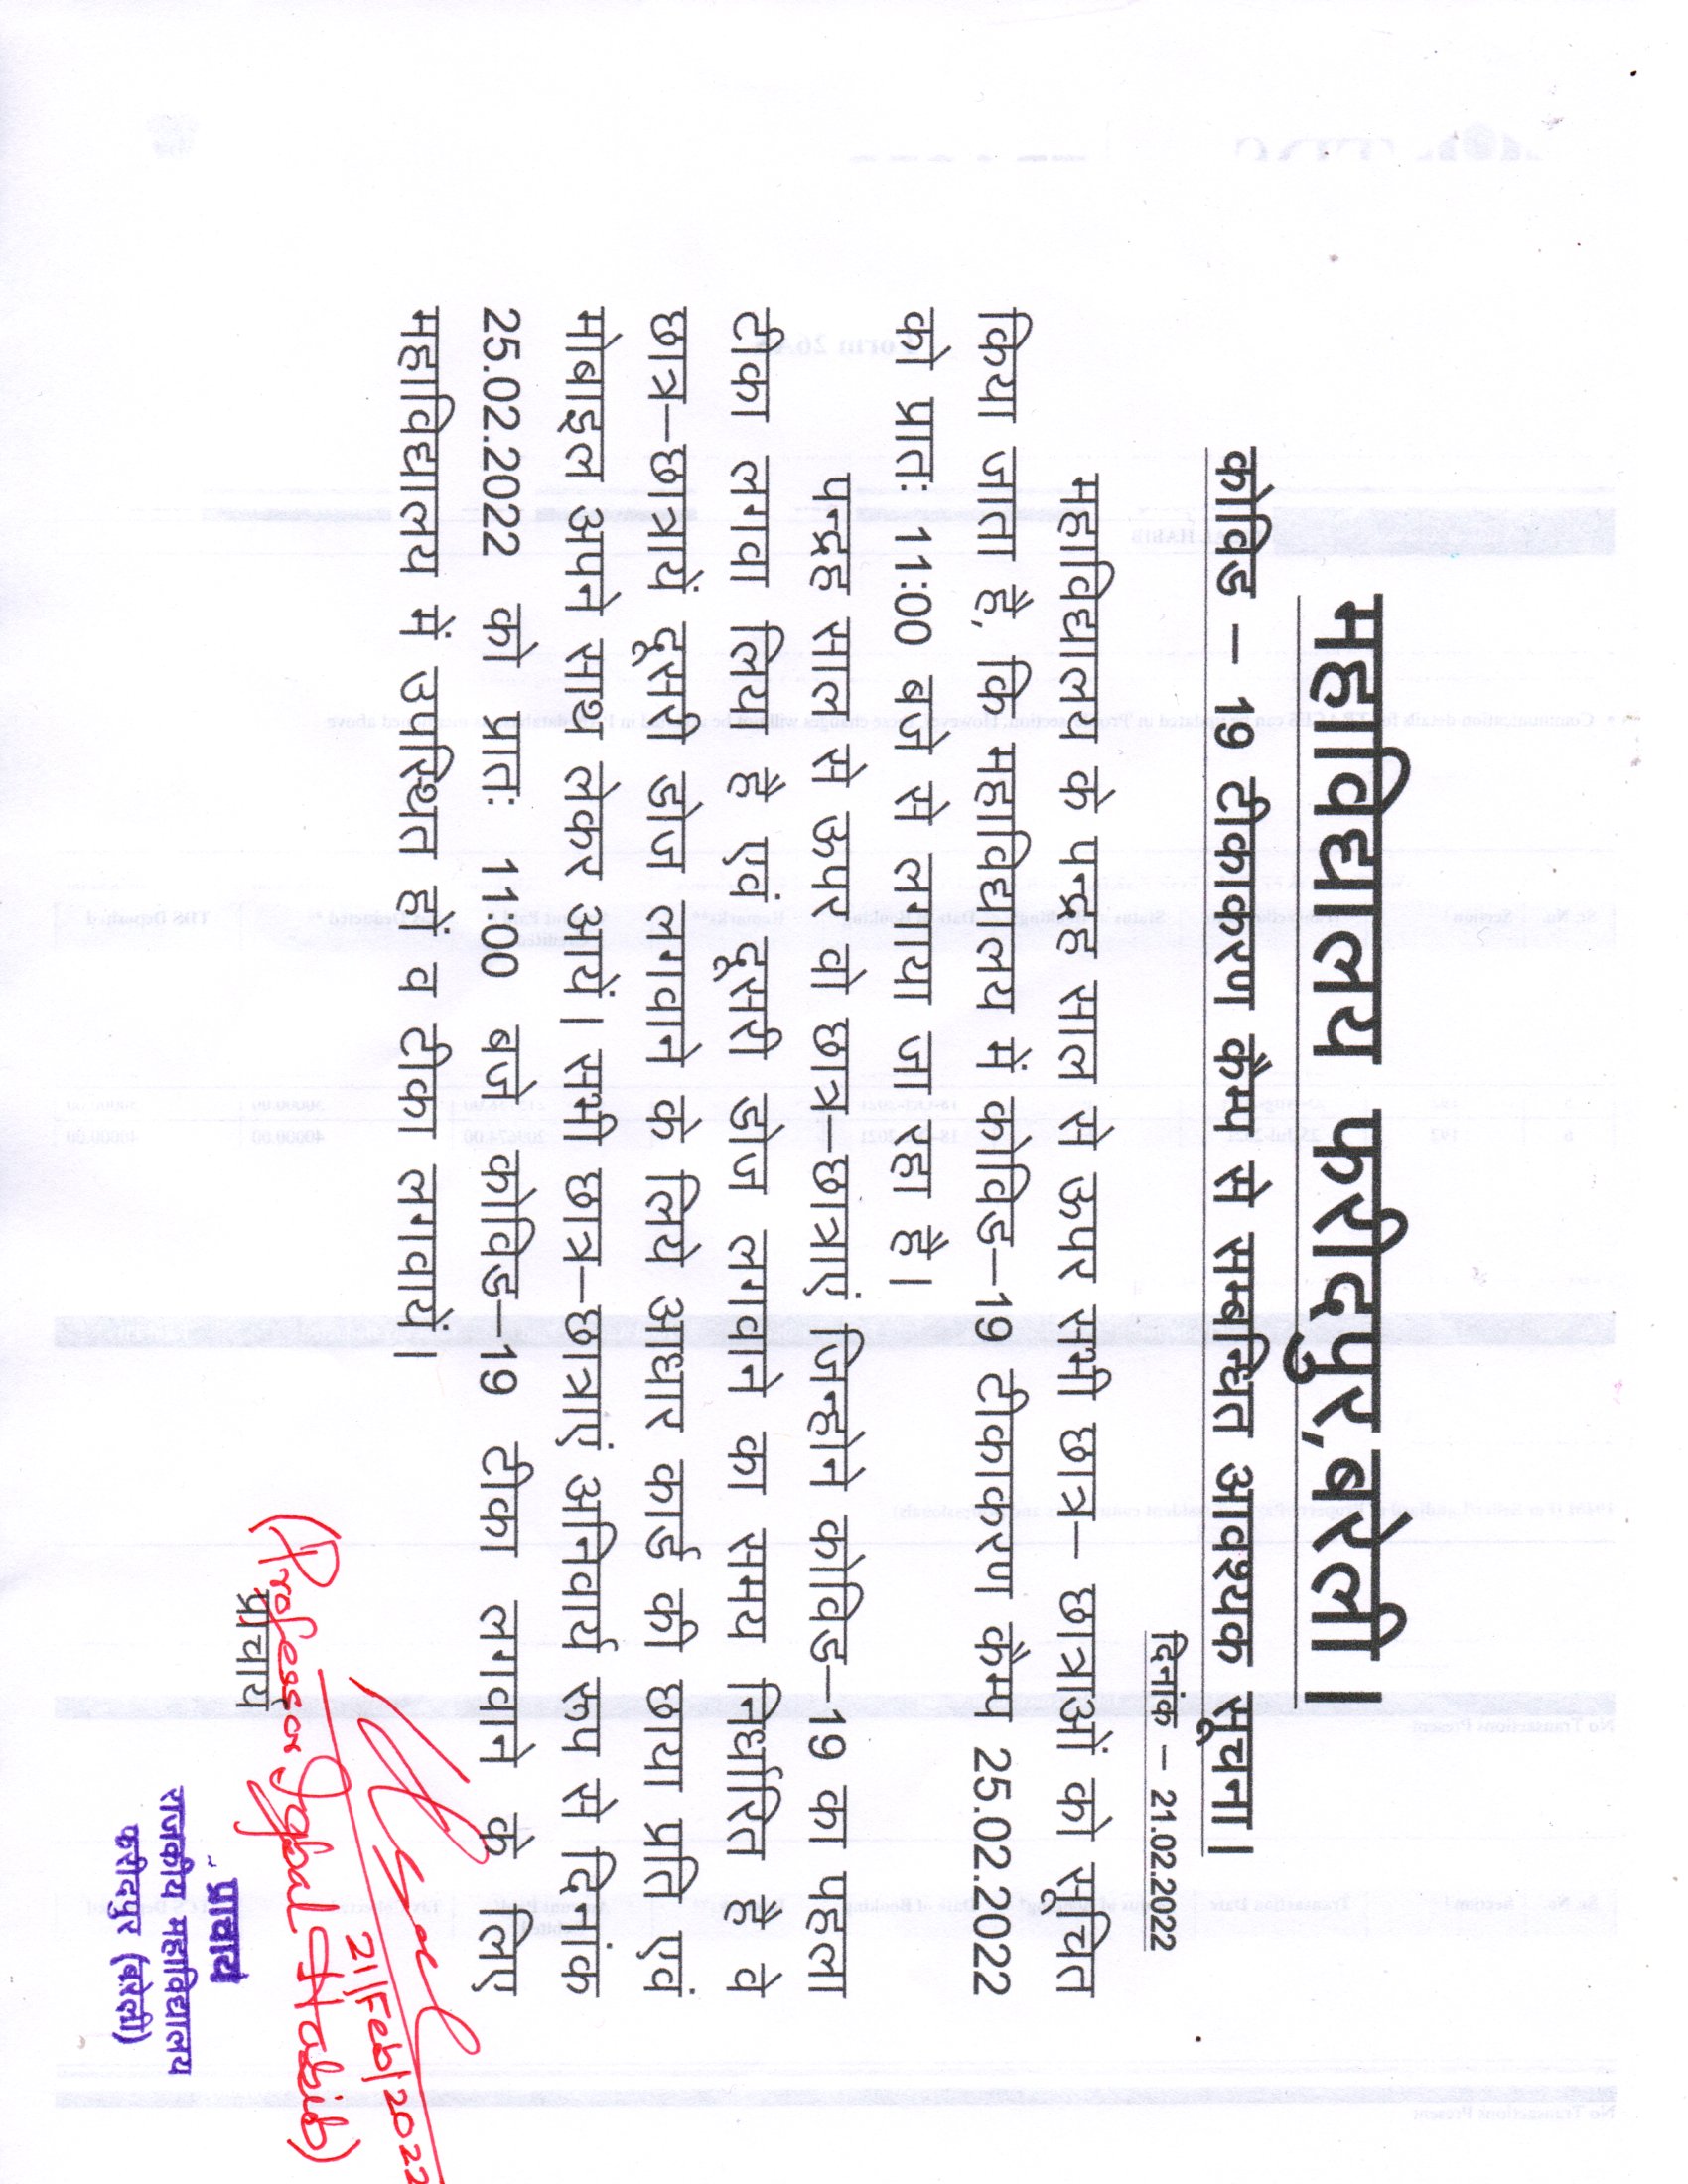 महाविद्यालय फरीदपुर,बरेली।
कोविड – 19 टीकाकरण कैम्प से सम्बन्धित आवश्यक सूचना।
दिनांक – 21.02.2022
महाविद्यालय के पन्द्रह साल से ऊपर सभी छात्र– छात्राओं को सूचित
किया जाता है, कि महाविद्यालय में कोविड–19 टीकाकरण कैम्प 25.02.2022
को प्रातः 11:00 बजे से लगाया जा रहा है।
पन्द्रह साल से ऊपर वो छात्र–छात्राएं जिन्होने कोविड–19 का पहला
टीका लगवा लिया है एवं दूसरी डोज लगवाने का समय निर्धारित है वे
छात्र–छात्रायें दूसरी डोज लगवाने के लिये अधार कार्ड की छाया प्रति एवं
मोबाइल अपने साथ लेकर आयें। सभी छात्र–छात्राएं अनिवार्य रूप से दिनांक
25.02.2022 को प्रातः 11:00 बजे कोविड–19 टीका लगवाने के लिए
महाविद्यालय में उपस्थित हों व टीका लगवायें।
21/Feb/2022
(Professor Iqbal Habib)
प्राचार्य
प्राचार्य
राजकीय महाविद्यालय
फरीदपुर (बरेली)